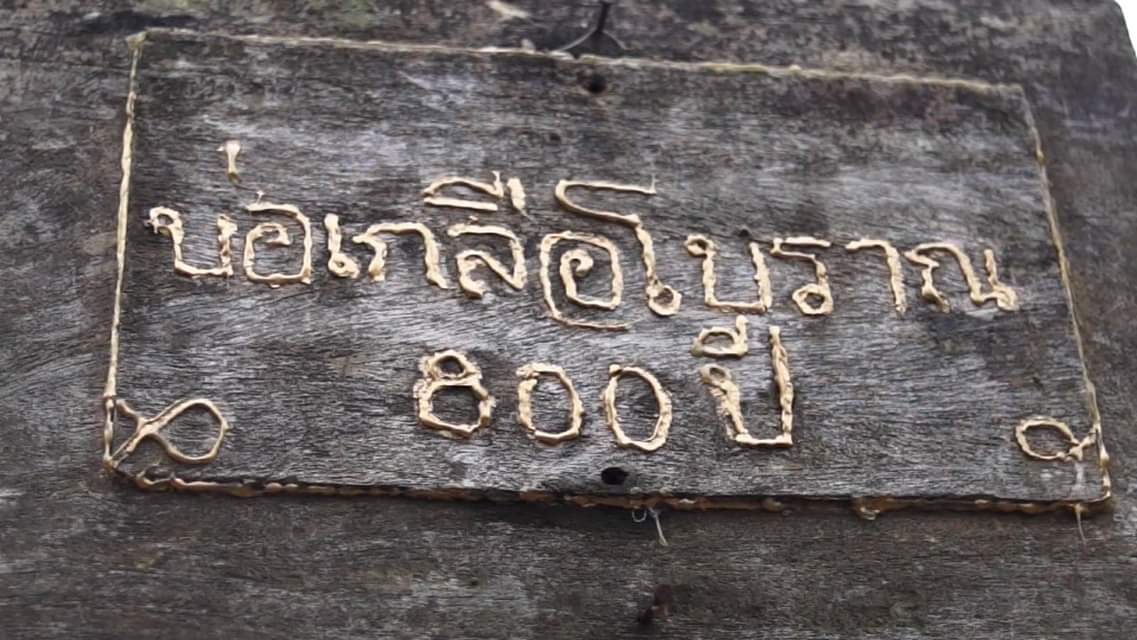 บ่อเกลือโบราณ
800 ปี